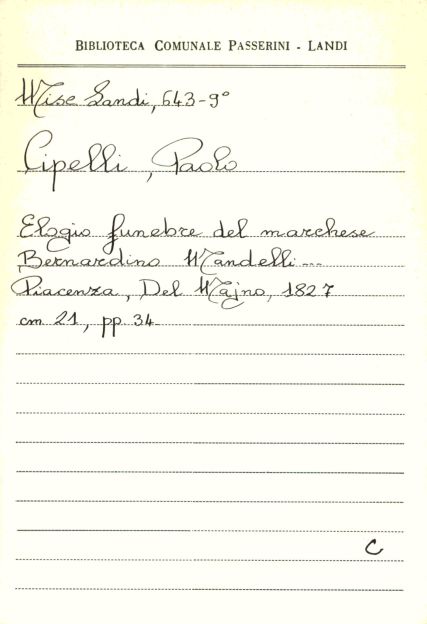 BIBLIOTECA COMUNALE PASSERINI - LANDI
Misc. Landi, 643-9°
Cipelli, Paolo
Elogio funebre del marchese
Bernardino Mandelli...
Piacenza, Del Majno, 1827
cm 21, pp 34
C